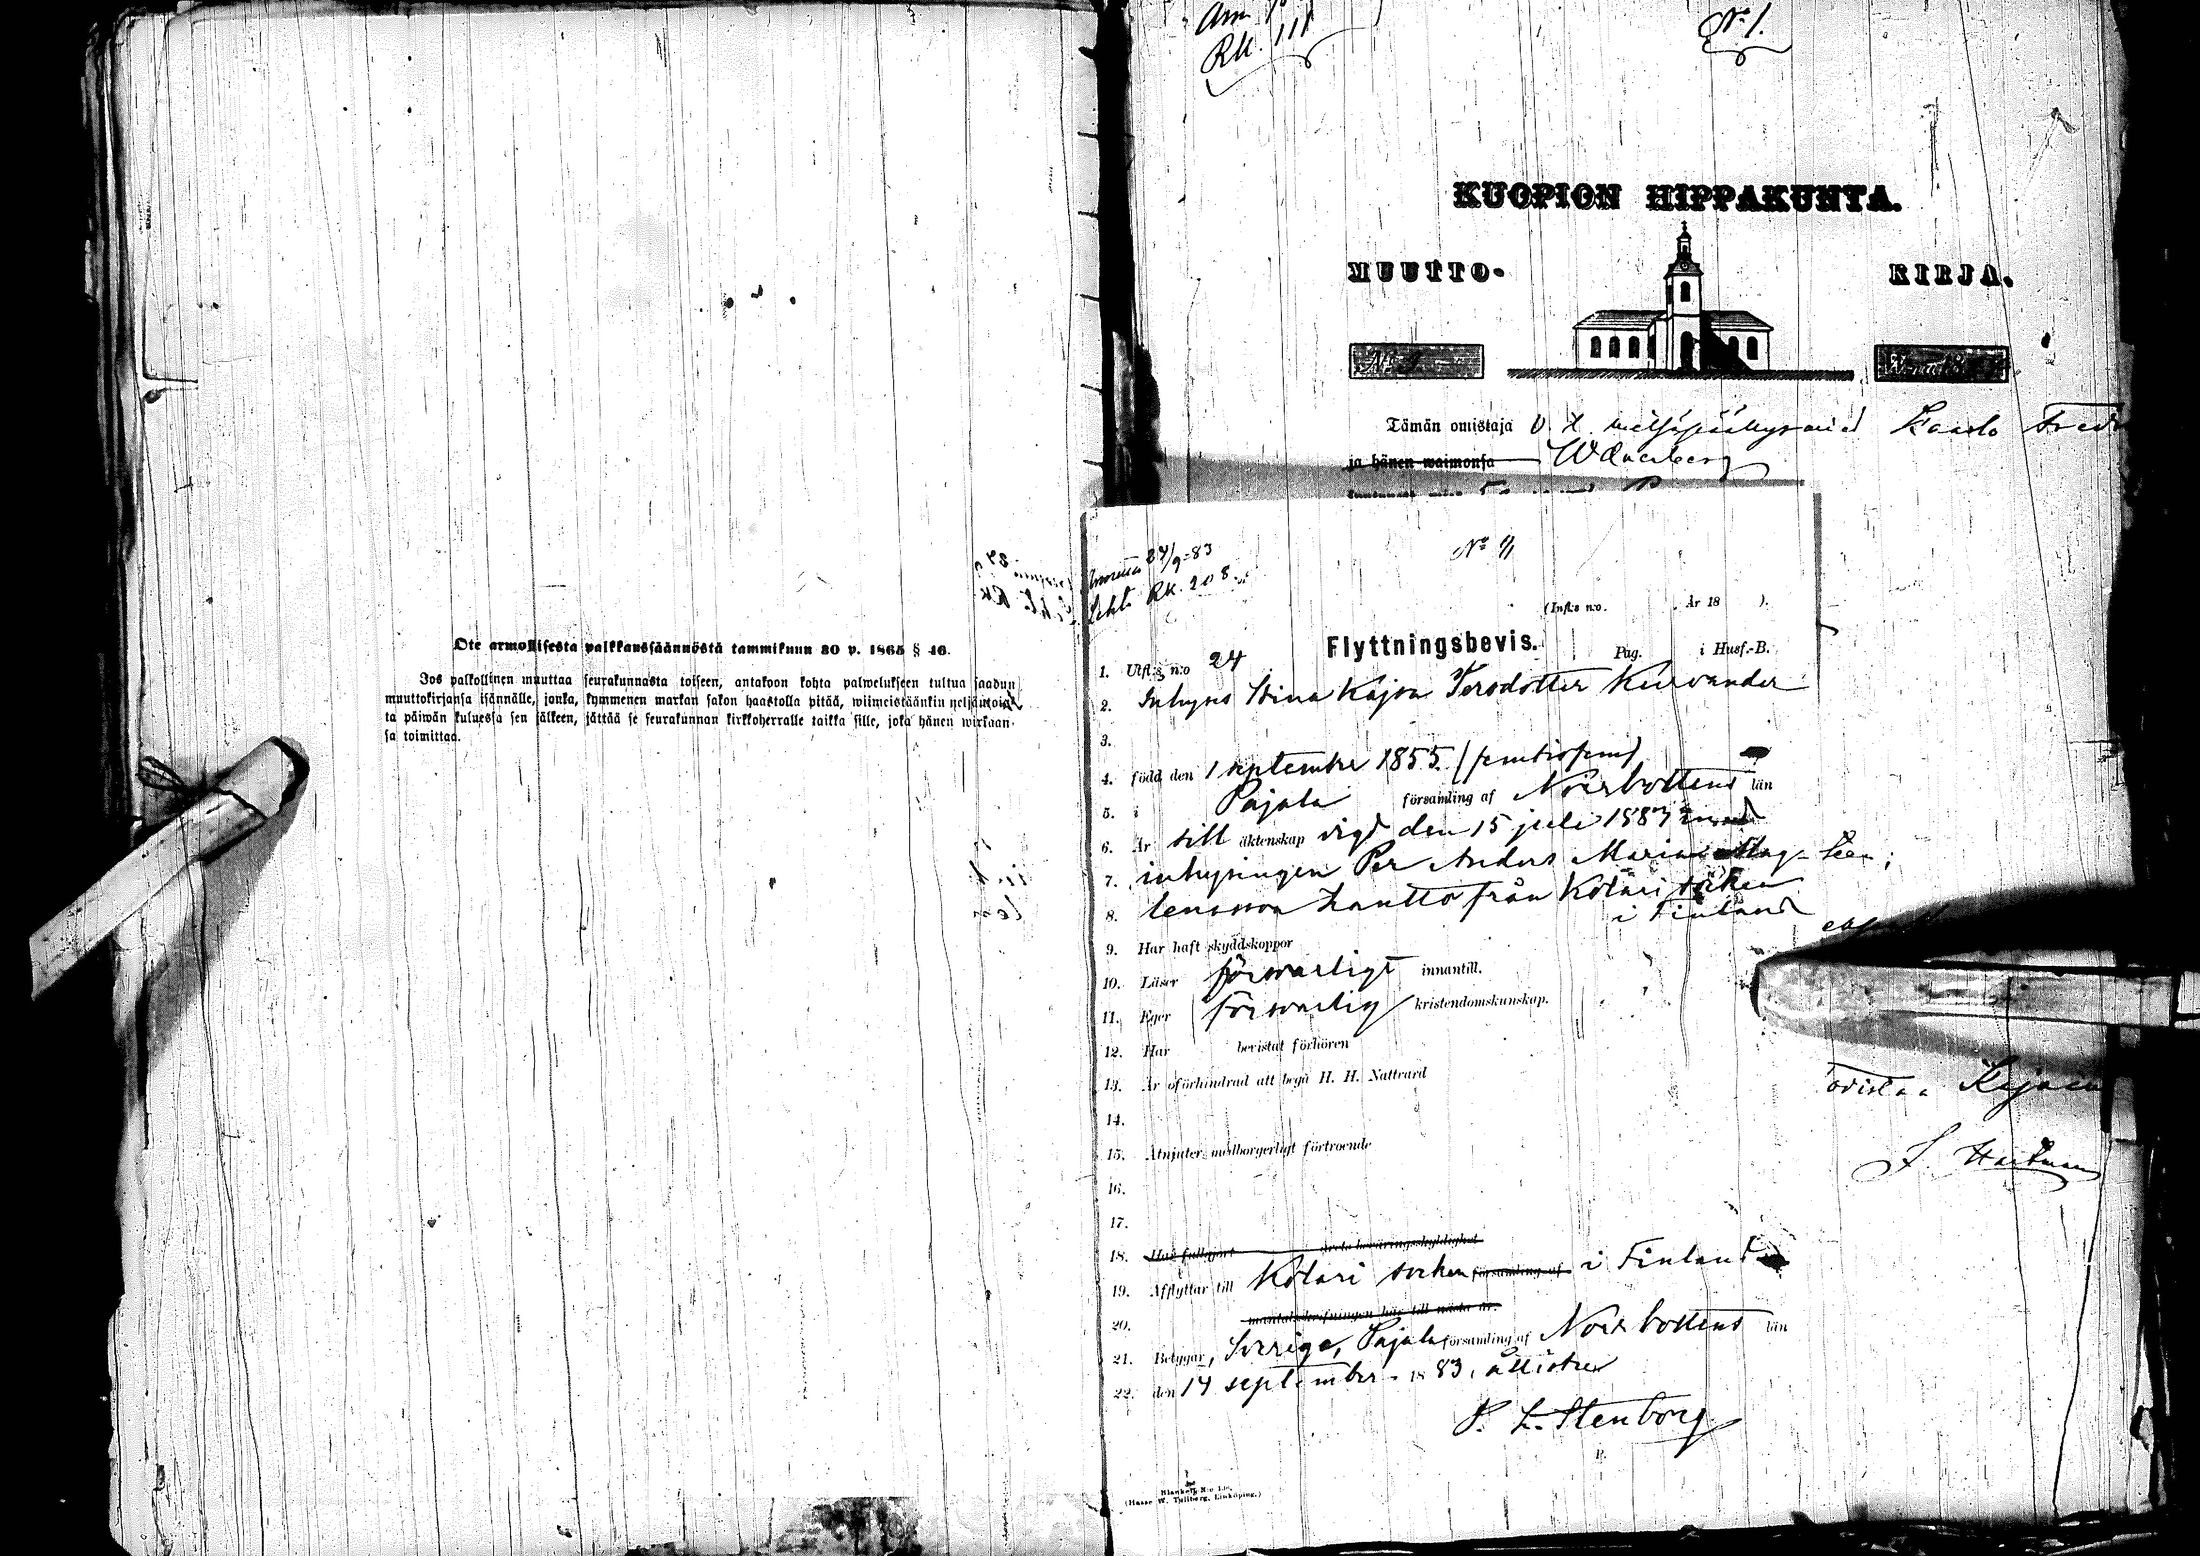 Ote armollisesta palkkaussäännöstä tammikuun 30 p. 1865 § 46.
Jos palkollinen muuttaa seurakunnasta toiseen, antakoon kohta palwelukseen tultua saadun
muuttokirjansa isännälle, jonka, kymmenen markan sakon haastolla pitää, wiimeistäänkin neljäntois-
ta päiwän kuluessa sen jälkeen, jättää se seurakunnan kirkkoherralle taikka sille, joka hänen wirkaan-
sa toimittaa.
Rk. 111
No 1.
KUOPION HIPPAKUNTA.
MUUTTO- KIRJA.
No 9.
Tämän omistaja Kaarlo Fredr
ja hänen waimonsa
27/9-83
Rk. 208.
No 9
(Infl:s n:o. År 18 ).
Flyttningsbevis.
Pag. i Husf.-B.
1. Utfl:s n:o 24
2. Inhyses Stina Kajsa Persdotter Kurvander
3.
4. född den 1 september 1855 (femtiofem)
5. i Pajala församling af Norrbottens län
6. Är till äktenskap vigd den 15 juli 1883 med
7. inhysingen Per Anders Maria Mag-
8. lensson Lantto från Kolari socken
i Finland
9. Har haft skyddskoppor
10. Läser försvarligt innantill.
11. Eger försvarlig kristendomskunskap.
12. Har bevistat förhören
13. Är oförhindrad att begå H. H. Nattvard
14.
15. Åtnjuter medborgerligt förtroende
16.
17.
18. Har fullgjort årets beväringsskyldighet
19. Afflyttar till Kolari socken församling af i Finland
20. mantalsskrifningen här till nästa år.
21. Betygar, Sverige, Pajala församling af Norrbottens län
22. den 14 september 1883, ällistrer
P. L. Stenborg
P.
(Hasse W. Tullberg, Linköping.)